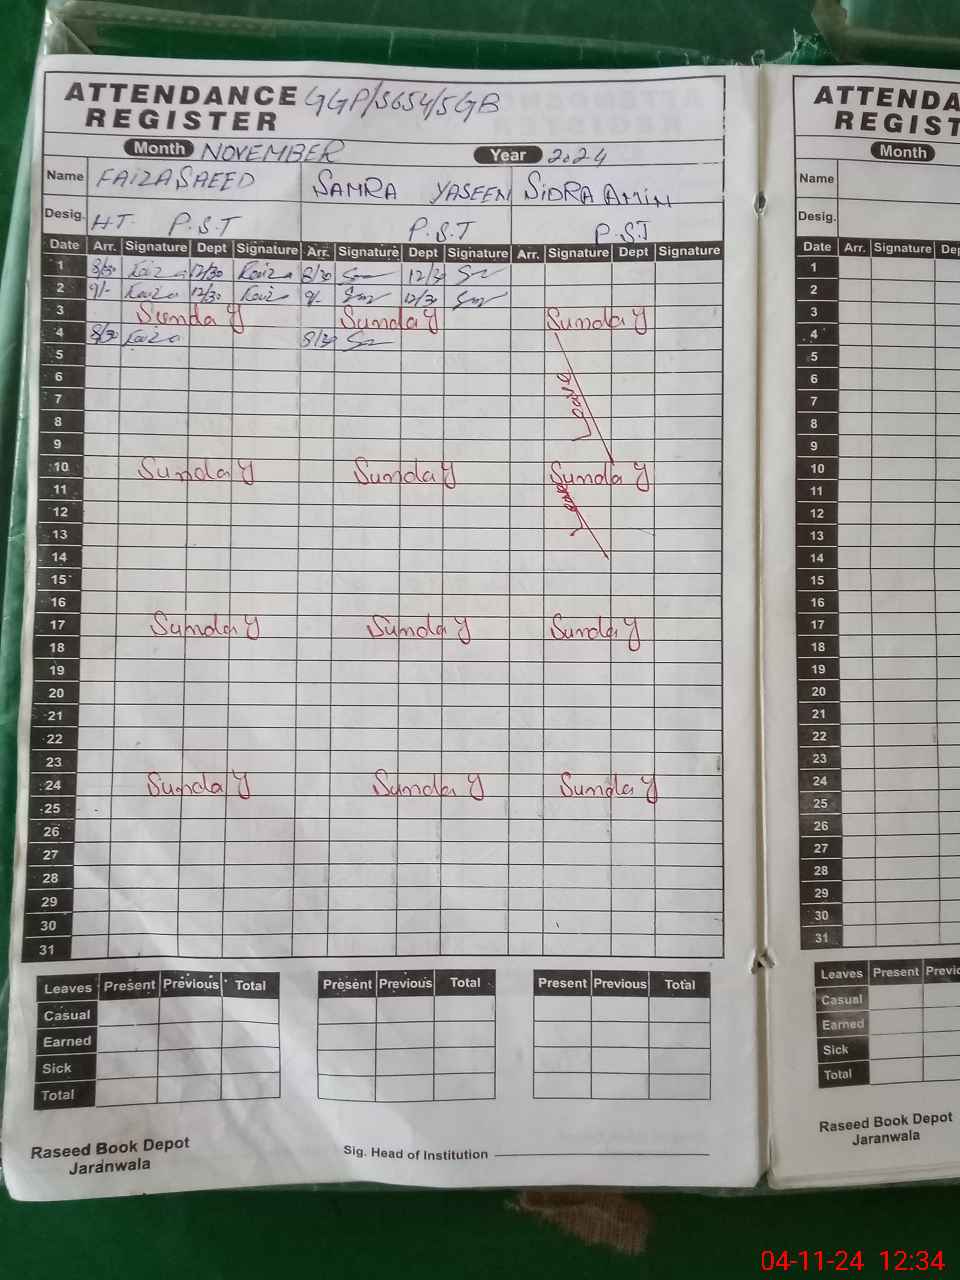 ATTENDANCE GGP/S654/5GB
REGISTER
Month NOVEMBER Year 2024
Name FAIZA SAEED SAMRA YASEEN SIDRA AMIN
Desig. H.T. P.S.T P.S.T P.S.T
Date Arr. Signature Dept Signature Arr. Signature Dept Signature Arr. Signature Dept Signature
1 8/30 Faiza 12/30 Faiza 8/30 12/30
2 9/- Faiza 12/30 Faiza 9/- 12/30
3 Sunday Sunday Sunday
4 8/30 Faiza 8/30
5
6 Leave
7
8
9
10 Sunday Sunday Sunday
11 Leave
12
13
14
15
16
17 Sunday Sunday Sunday
18
19
20
21
22
23
24 Sunday Sunday Sunday
25
26
27
28
29
30
31
Leaves Present Previous Total Present Previous Total Present Previous Total
Casual
Earned
Sick
Total
Raseed Book Depot
Jaranwala
Sig. Head of Institution
ATTENDA
REGIST
Month
Name
Desig.
Date Arr. Signature Dep
1
2
3
4
5
6
7
8
9
10
11
12
13
14
15
16
17
18
19
20
21
22
23
24
25
26
27
28
29
30
31
Leaves Present Previo
Casual
Earned
Sick
Total
Raseed Book Depot
Jaranwala
04-11-24 12:34